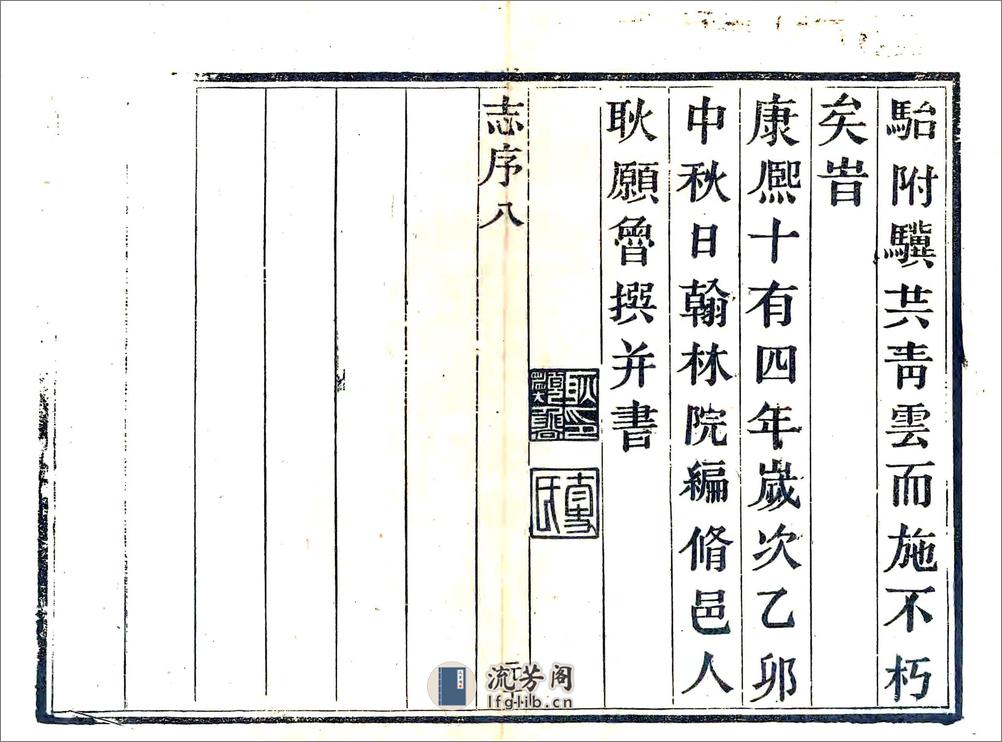 駘附驥共青雲而施不朽
矣旹
康熙十有四年歲次乙卯
中秋日翰林院編脩邑人
耿願魯撰并書
志序八
流芳阁
lfglib.cn